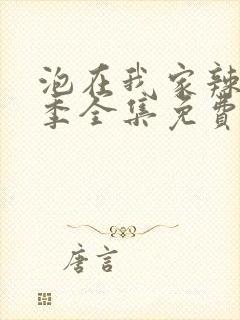 泡在我家辣
季全集免费
唐言